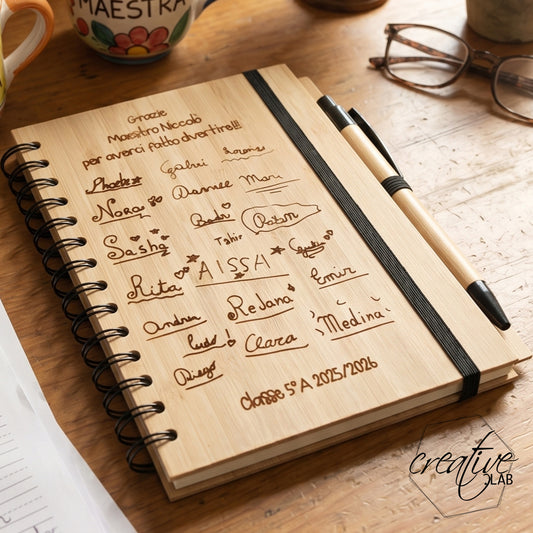 MAESTRA
Grazie
Maestro Niccolò
per averci fatto divertire!!!
Phoebe Gabri Lorenzo
Nora Dannee Mari
Sasha Badr
Tahir
Rita AISSA
Emir
Andrea Rejana Medina
Ludo! Clara
Diego
classe 5°A 2025/2026
creative
LAB